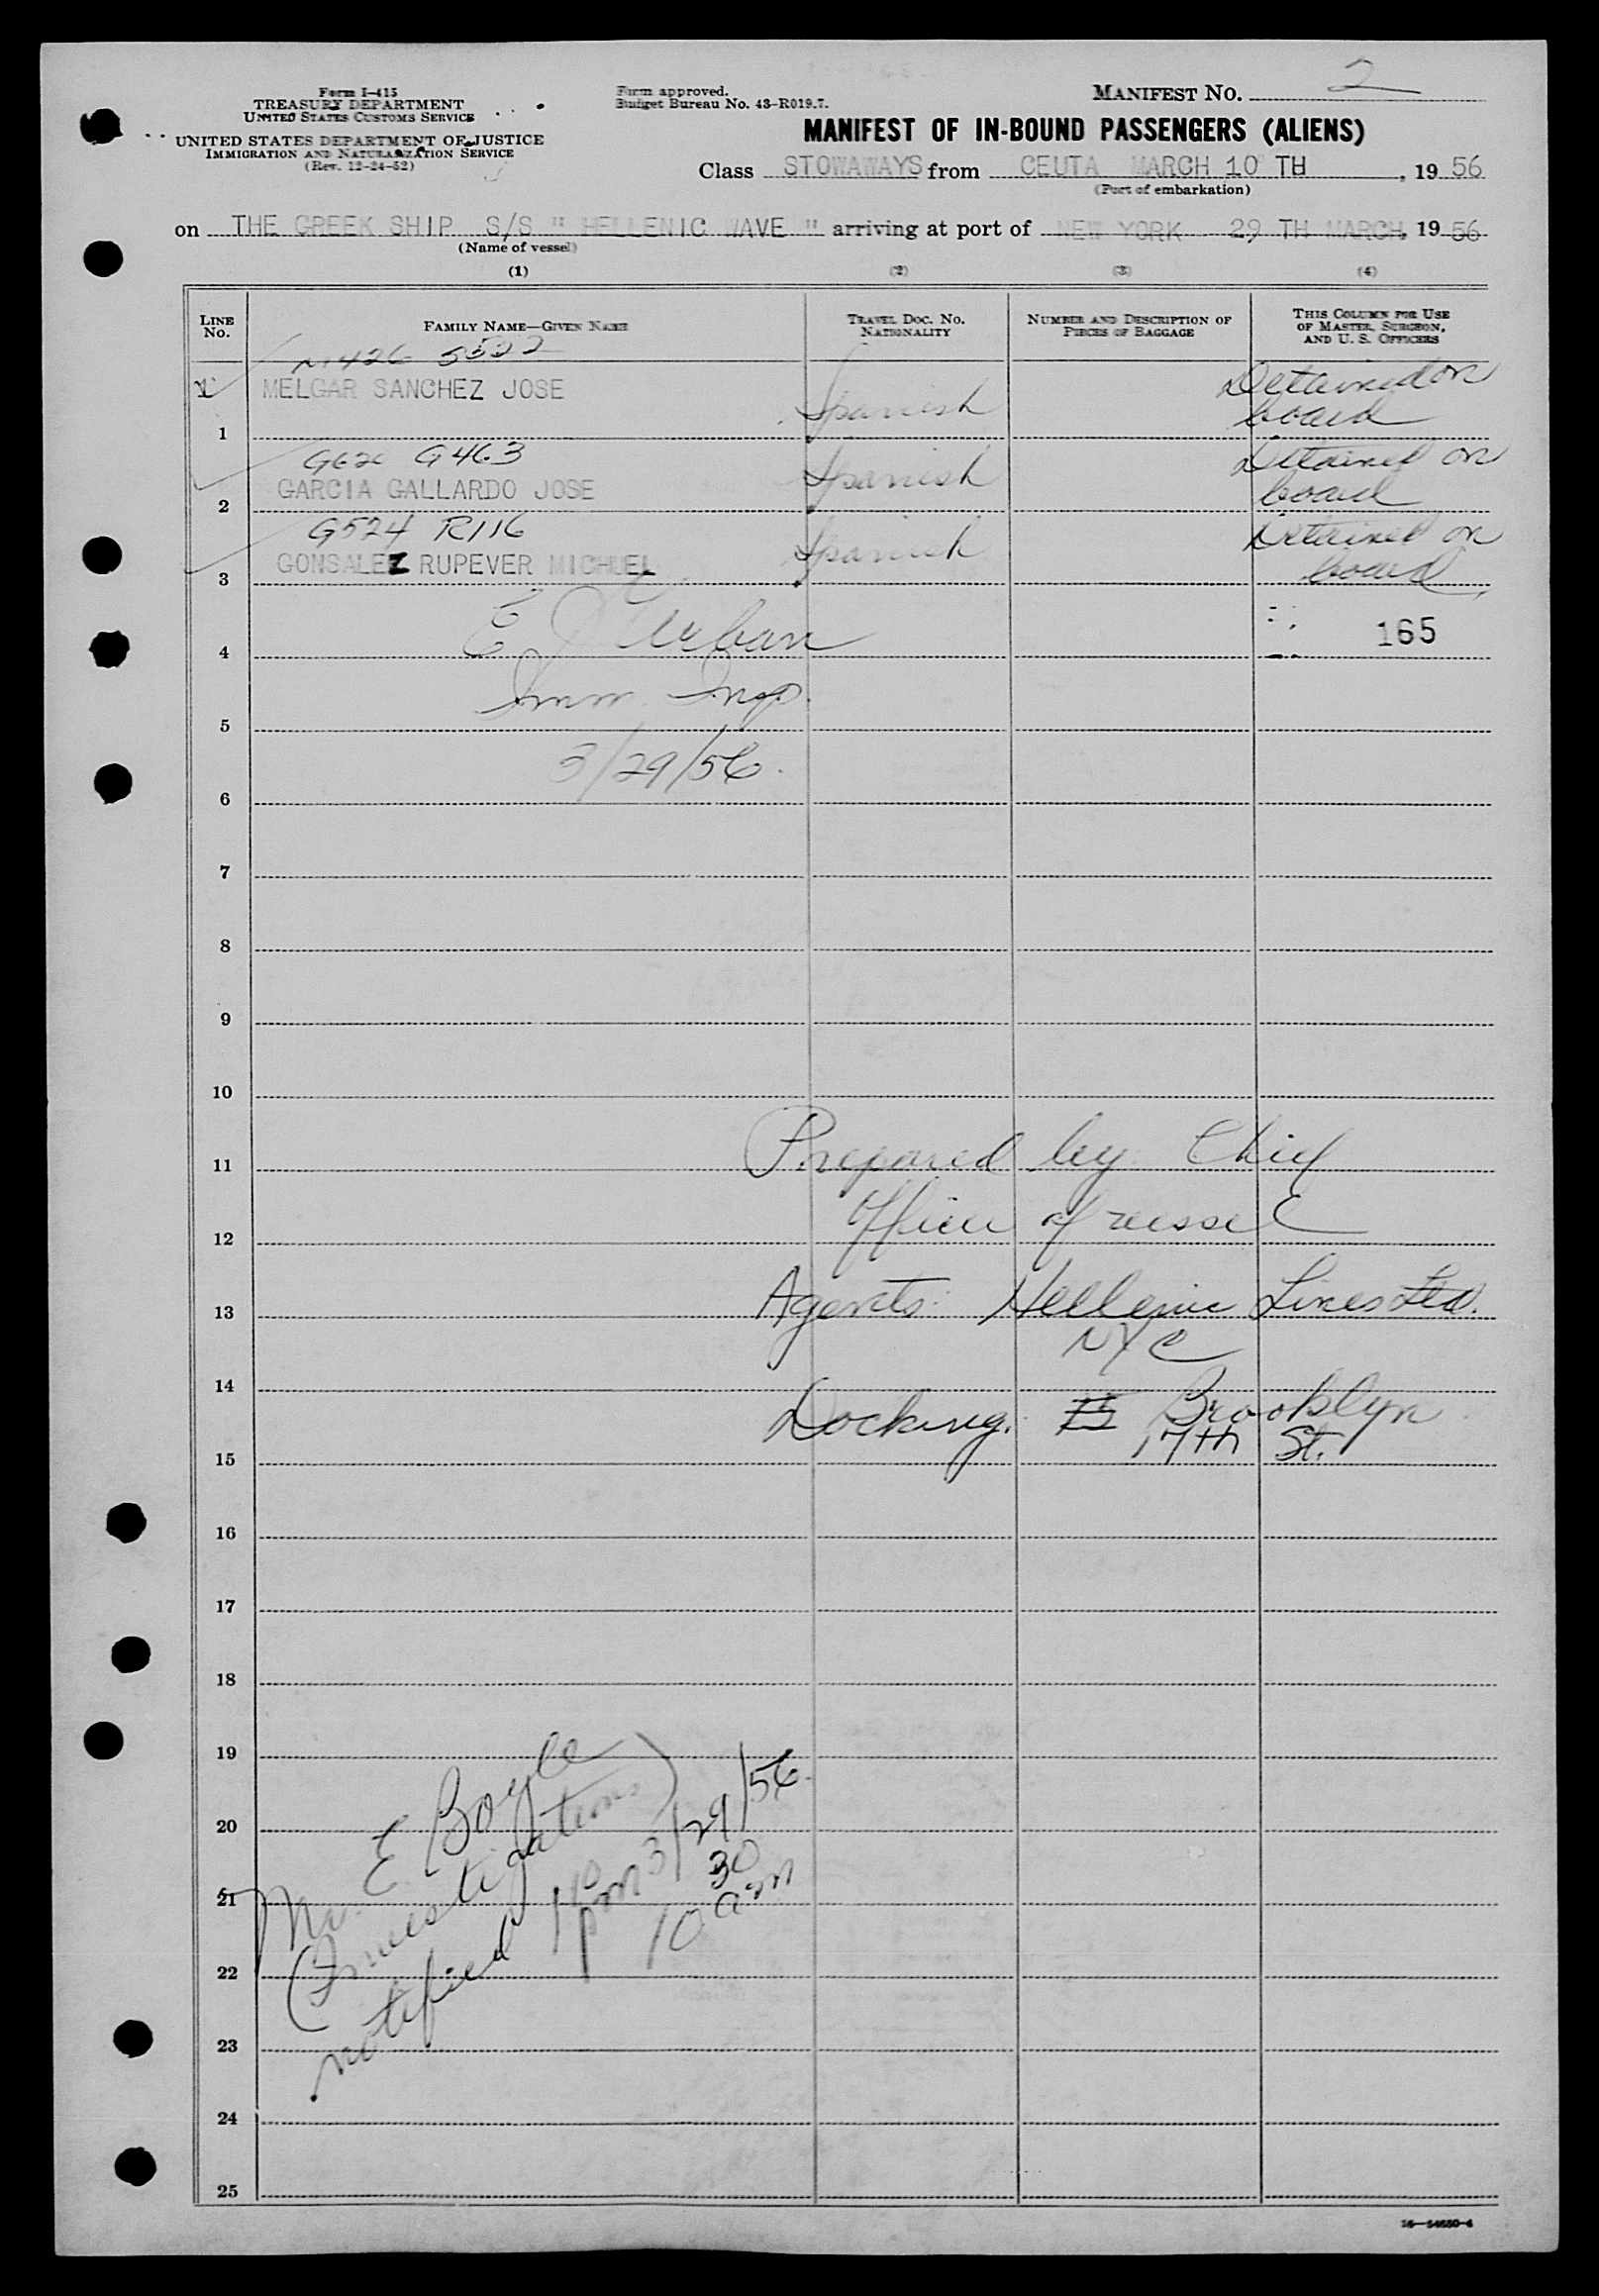 Form I-415
TREASURY DEPARTMENT
UNITED STATES CUSTOMS SERVICE
UNITED STATES DEPARTMENT OF JUSTICE
IMMIGRATION AND NATURALIZATION SERVICE
(Rev. 12-24-52)
Form approved.
Budget Bureau No. 43-R019.7.
MANIFEST NO. 2
MANIFEST OF IN-BOUND PASSENGERS (ALIENS)
Class STOWAWAYS from CEUTA MARCH 10 TH, 19 56
(Port of embarkation)
on THE GREEK SHIP S/S " HELLENIC WAVE " arriving at port of NEW YORK 29 TH MARCH, 19 56
(Name of vessel)
(1) (2) (3) (4)
LINE NO.
FAMILY NAME—GIVEN NAME
TRAVEL DOC. NO. NATIONALITY
NUMBER AND DESCRIPTION OF PIECES OF BAGGAGE
THIS COLUMN FOR USE OF MASTER, SURGEON, AND U. S. OFFICERS
M426 S522
1 MELGAR SANCHEZ JOSE Spanish Detained on board
G620 G463
2 GARCIA GALLARDO JOSE Spanish Detained on board
G524 R116
3 GONSALEZ RUPEVER MICHUEL Spanish Detained on board
4 E J Urban 165
5 Imm. Insp.
6 3/29/56.
7
8
9
10
11 Prepared by Chief
12 Officer of vessel
13 Agents: Hellenic Lines Ltd.
14 NYC
Docking: Brooklyn
15 17th St.
16
17
18
19
20
21
22
23
24
25
Mr. E Boyle
(Investigations)
notified 1 10 pm 3/29/56.
10 30 am
16—54650-4